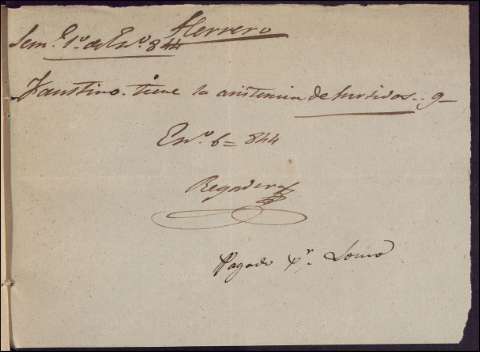 Herrero
Sem.ª 1.ª de En.º 844
Faustino tiene la asistencia de surtidos 9-
En.º 6= 844
Regadera
Pagado pr.